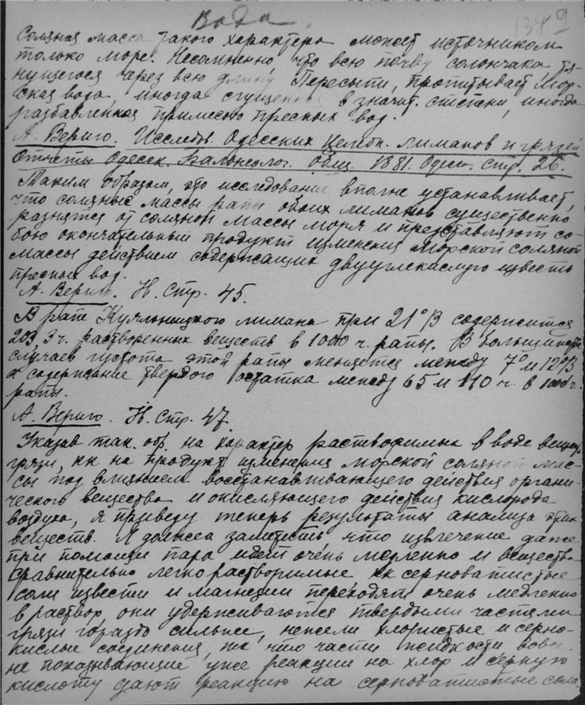 Вода.
134 а
Соляная масса такого характера может источником
только море. Несомненно, что всю почву солончака тя-
нущегося через всю длину Пересыпи, пропитывает мор-
ская вода, иногда сгущенная в значит. степени, иногда
разбавленная примесью пресных вод.
А. Вериго. Исследв. Одесских целебн. лиманов и грязей
Отчеты Одесск. Бальнеолог. Общ. 1881. Одес. стр. 26.
Таким образом, это исследование вполне устанавливает,
что соляные массы рапы обоих лиманов существенно
разнятся от соляной массы моря и представляют со-
бою окончательный продукт изменения морской соляной
массы действием содержащих двууглекислую известь
пресных вод.
А. Вериго. Н. Стр. 45.
В рапе Куяльницкого лимана при 21°B содержится
203,3 ч. растворенных веществ в 1000 ч. рапы. В большинстве
случаев густота этой рапы меняется между 7° и 12°B
а содержание твердого остатка между 65 и 110 ч. в 1000 ч.
рапы.
А. Вериго. Н. Стр. 47.
Указав так. обр. на характер растворимых в воде веществ
грязи, как на продукт изменения морской соляной мас-
сы под влиянием восстанавливающего действия органи-
ческого вещества и окисляющего действия кислорода
воздуха, я приведу теперь результаты анализа этих
веществ. Я должен заметить, что извлечение даже
при помощи пара идет очень медленно и вещества
сравнительно легко растворимые, как серноватистые
соли извести и магнезии переходят очень медленно
в раствор, они удерживаются твердыми частями
грязи гораздо сильнее, нежели хлористые и серно-
кислые соединения, так что части жидкости вовсе
не показывающие уже реакции на хлор и серную
кислоту дают реакцию на серноватистые соли